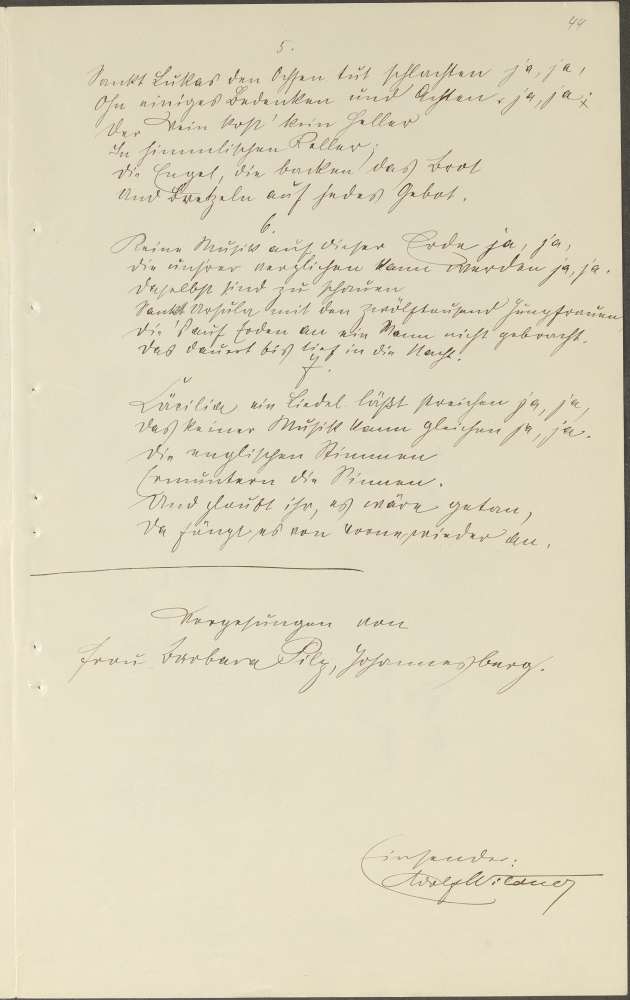 44
5.
Sankt Lukas den Ochsen tut schlachten ja, ja,
Ohn einiges Bedenken und Achten, ja, ja;
Der Wein kost' kein Heller
In himmlischen Keller;
Die Engel, die backen das Brot
Und Bretzeln auf jedes Gebot.
6.
Keine Musik auf dieser Erde ja, ja,
Die unsrer verglichen kann werden ja, ja.
Daselbst sind zu schauen
Sankt Ursula mit den zwölftausend Jungfrauen,
Die's auf Erden an ein Mann nicht gebracht.
Das dauert bis tief in die Nacht.
7.
Cäcilia ein Liedel läßt streichen ja, ja,
Das keiner Musik kann gleichen ja, ja.
Die englischen Stimmen
Ermuntern die Sinnen.
Und glaubt ihr, es wäre getan,
Da fängt es von vorne wieder an.
Vorgesungen von
Frau Barbara Pilz, Johannesberg.
Einsender:
Adolf Wildner